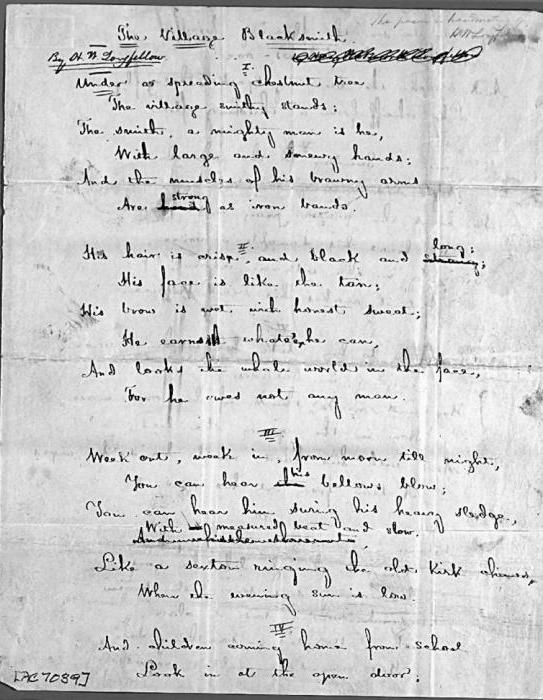 The Village Blacksmith.
By H. W. Longfellow
I
Under a spreading chestnut tree
The village smithy stands;
The smith, a mighty man is he,
With large and sinewy hands;
And the muscles of his brawny arms
Are strong as iron bands.
II
His hair is crisp, and black and long;
His face is like the tan;
His brow is wet with honest sweat;
He earns whate'er he can,
And looks the whole world in the face,
For he owes not any man.
III
Week out, week in, from morn till night,
You can hear his bellows blow;
You can hear him swing his heavy sledge,
With measured beat and slow.
Like a sexton ringing the old kirk chimes,
When the evening sun is low.
IV
And children coming home from school
Look in at the open door;
[AC7089]